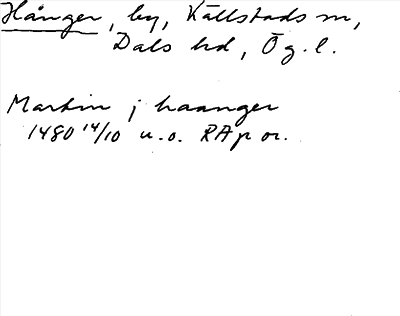 Hånger, by, Källstads sn,
Dals hd, Ög. l.
Martin j haanger
1480 14/10 u.o. RAp or.